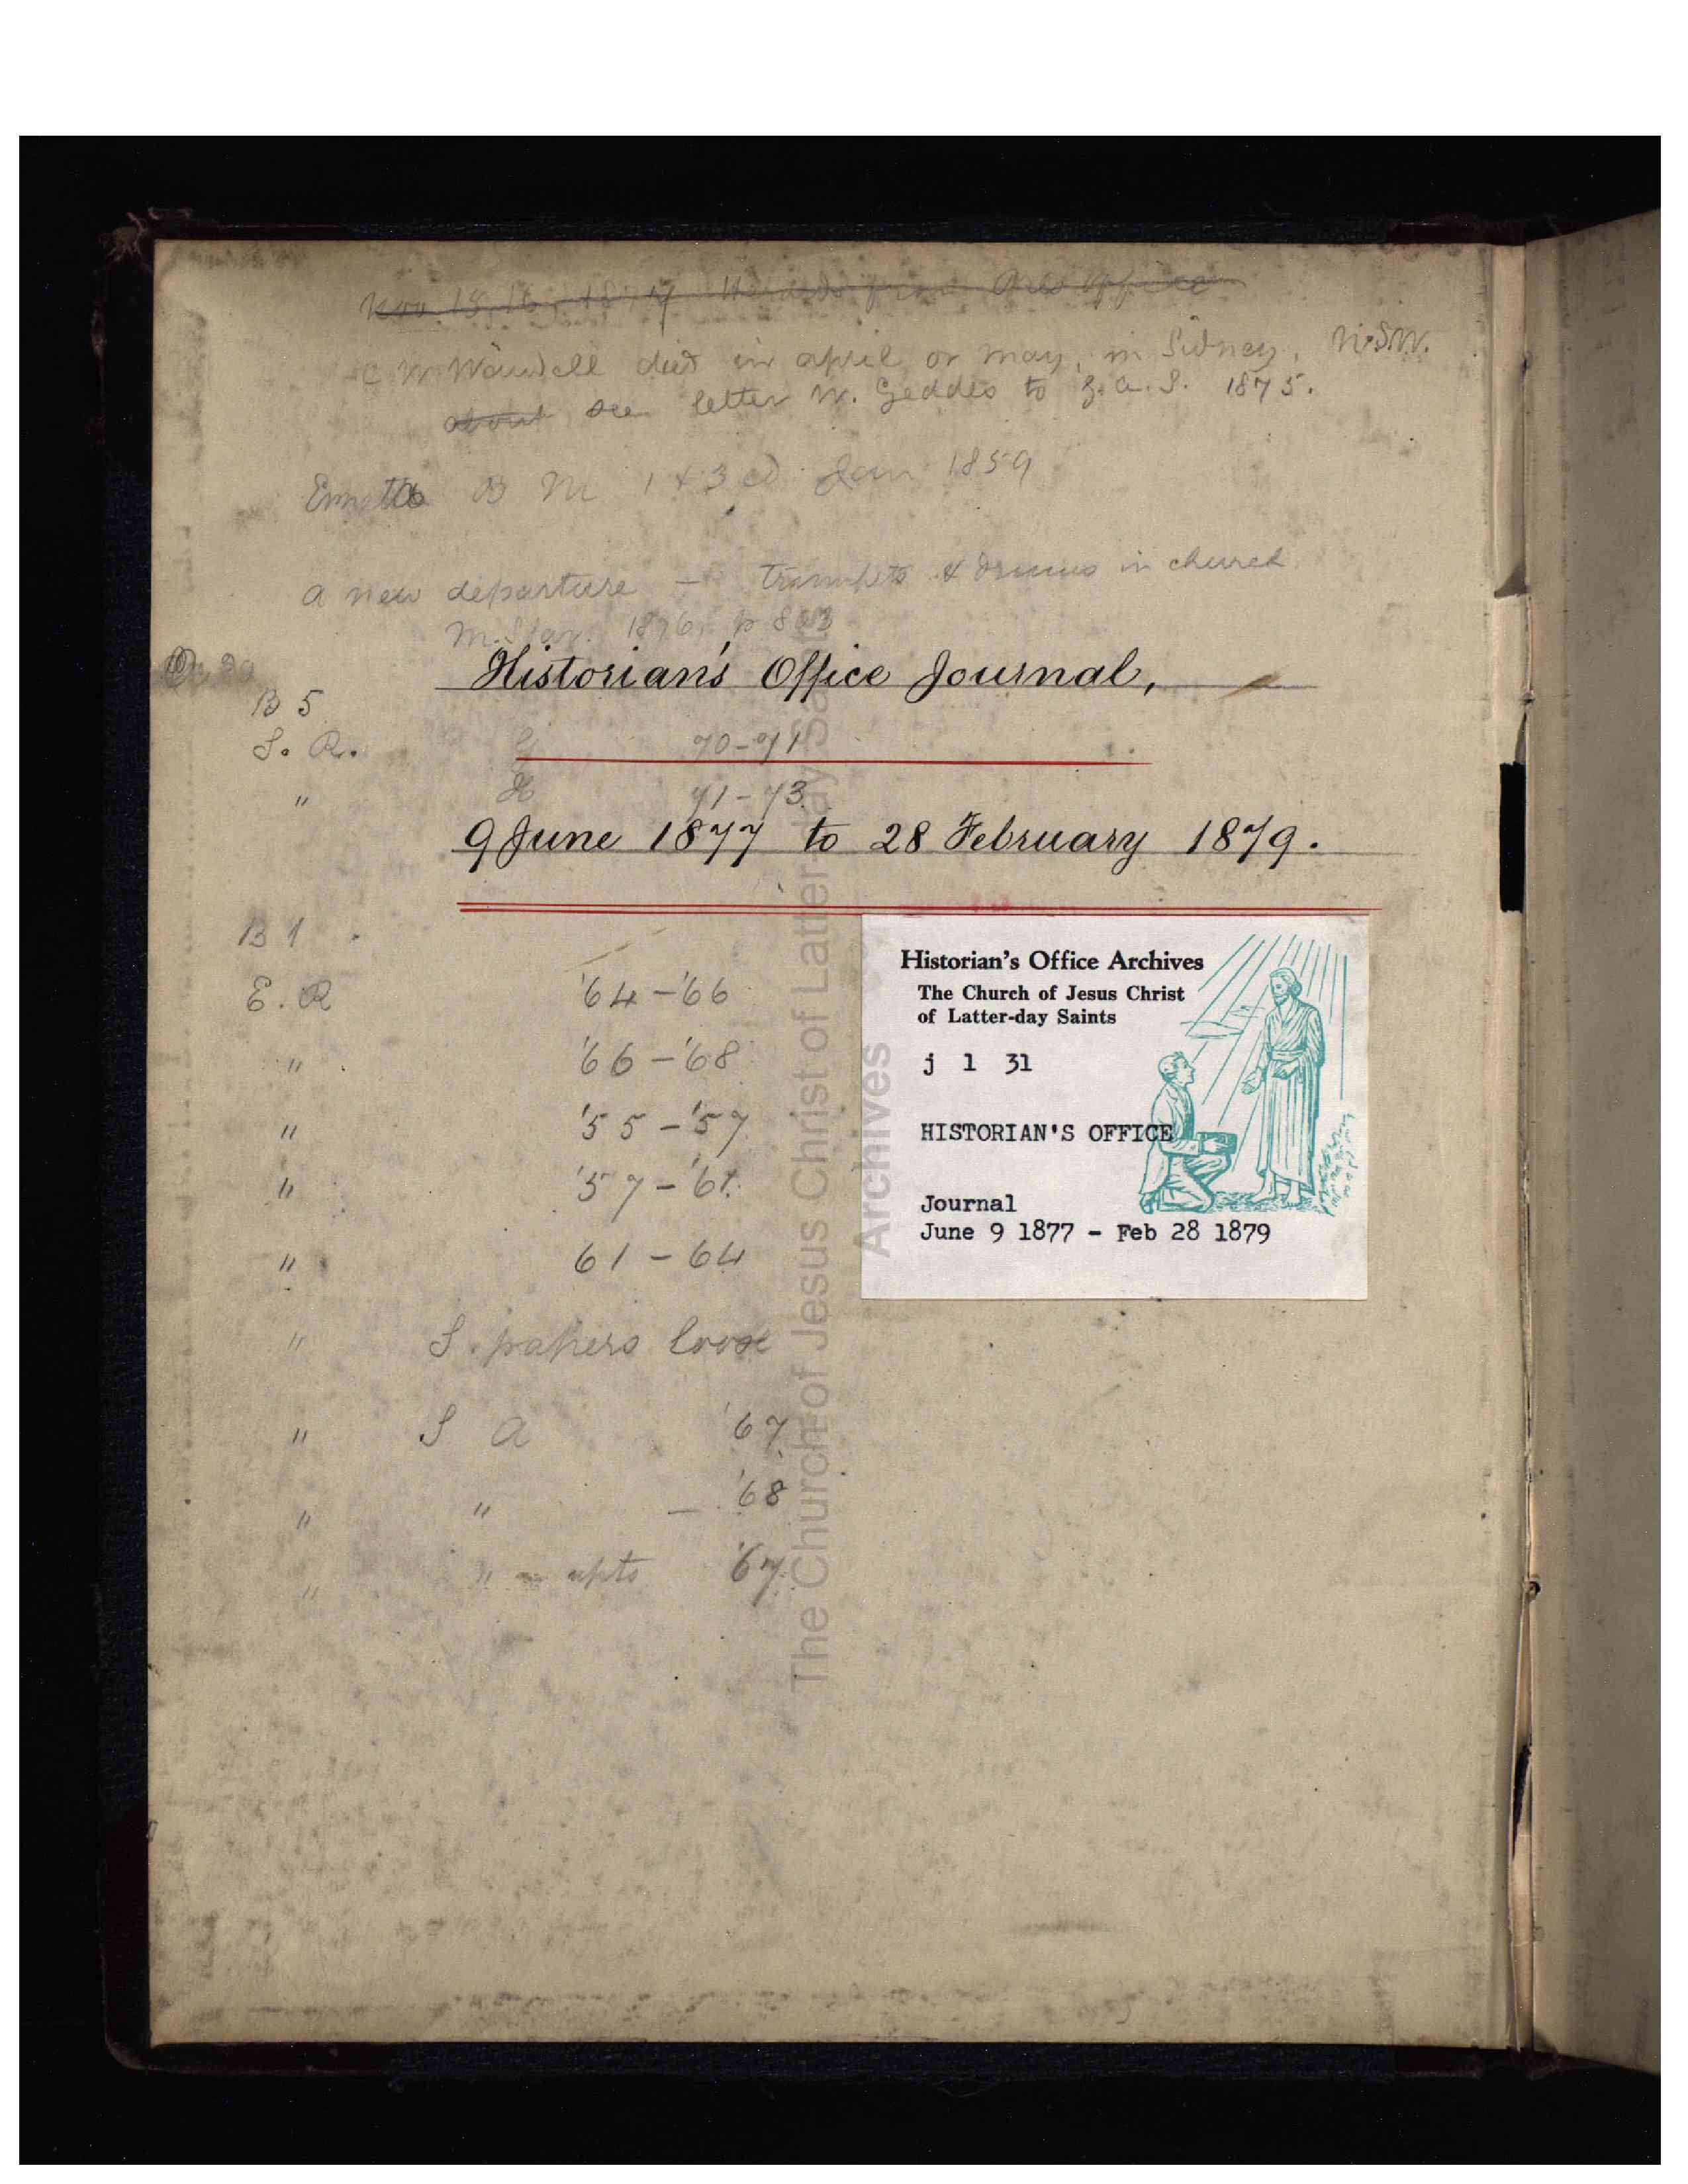 Nov 15, 16, 1877 Heralds from Office
C W Wandell died in april or may, in Sidney, N.S.W.
about see letter W. Geddes to G. A. S. 1875.
B M 1 & 3 ed Jan 1859
A new departure — Trumpets & drums in church
M. Star. 1876, p 803
Historian's Office Journal,
B 5
S. R. G 70-71
" H 71-73
9 June 1877 to 28 February 1879.
B 1
E. R '64-'66
" '66-'68
" '55-'57
" '57-'61.
" 61-64
" S. papers loose
" S A '67
" " — '68
" " '67
Historian's Office Archives
The Church of Jesus Christ
of Latter-day Saints
j 1 31
HISTORIAN'S OFFICE
Journal
June 9 1877 - Feb 28 1879
The Church of Jesus Christ of Latter-day Saints
Archives